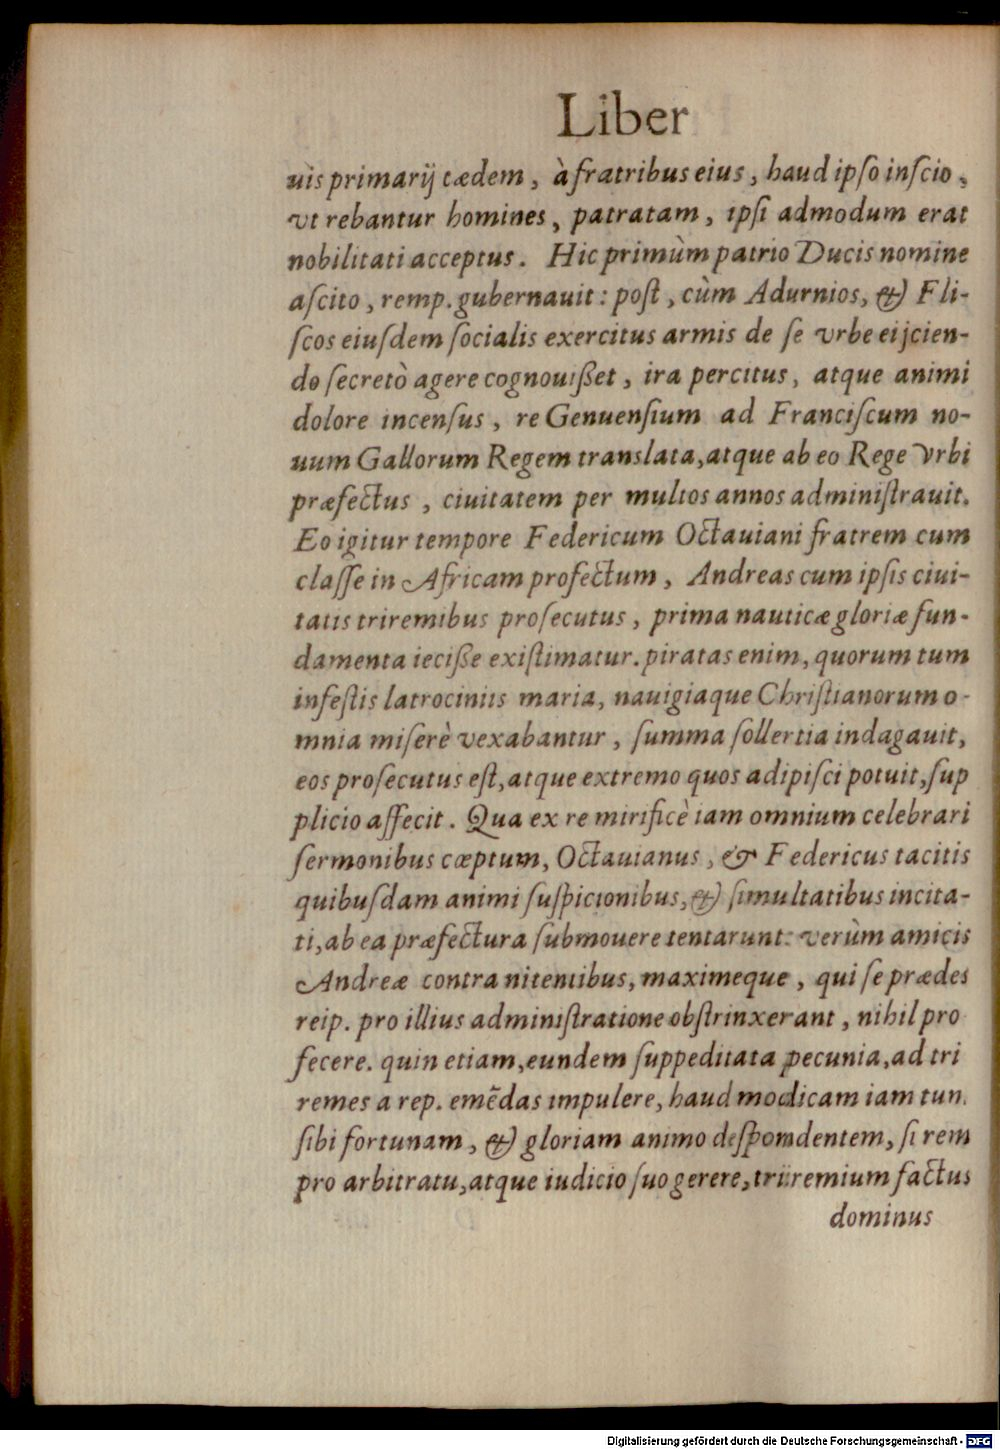 Liber
uis primarij cædem, à fratribus eius, haud ipso inscio,
vt rebantur homines, patratam, ipsi admodum erat
nobilitati acceptus. Hic primùm patrio Ducis nomine
ascito, remp. gubernauit: post, cùm Adurnios, & Fli-
scos eiusdem socialis exercitus armis de se vrbe eijcien-
do secretò agere cognouißet, ira percitus, atque animi
dolore incensus, re Genuensium ad Franciscum no-
uum Gallorum Regem translata, atque ab eo Rege Vrbi
præfectus, ciuitatem per multos annos administrauit.
Eo igitur tempore Federicum Octauiani fratrem cum
classe in Africam profectum, Andreas cum ipsis ciui-
tatis triremibus prosecutus, prima nauticæ gloriæ fun-
damenta ieciße existimatur. piratas enim, quorum tum
infestis latrociniis maria, nauigiaque Christianorum o-
mnia miserè vexabantur, summa sollertia indagauit,
eos prosecutus est, atque extremo quos adipisci potuit, sup
plicio affecit. Qua ex re mirificè iam omnium celebrari
sermonibus cœptum, Octauianus, & Federicus tacitis
quibusdam animi suspicionibus, & simultatibus incita-
ti, ab ea præfectura submouere tentarunt: verùm amicis
Andreæ contra nitentibus, maximeque, qui se prædes
reip. pro illius administratione obstrinxerant, nihil pro
fecere. quin etiam, eundem suppeditata pecunia, ad tri
remes a rep. emẽdas impulere, haud modicam iam tun.
sibi fortunam, & gloriam animo despondentem, si rem
pro arbitratu, atque iudicio suo gerere, triremium factus
dominus
Digitalisierung gefördert durch die Deutsche Forschungsgemeinschaft - DFG